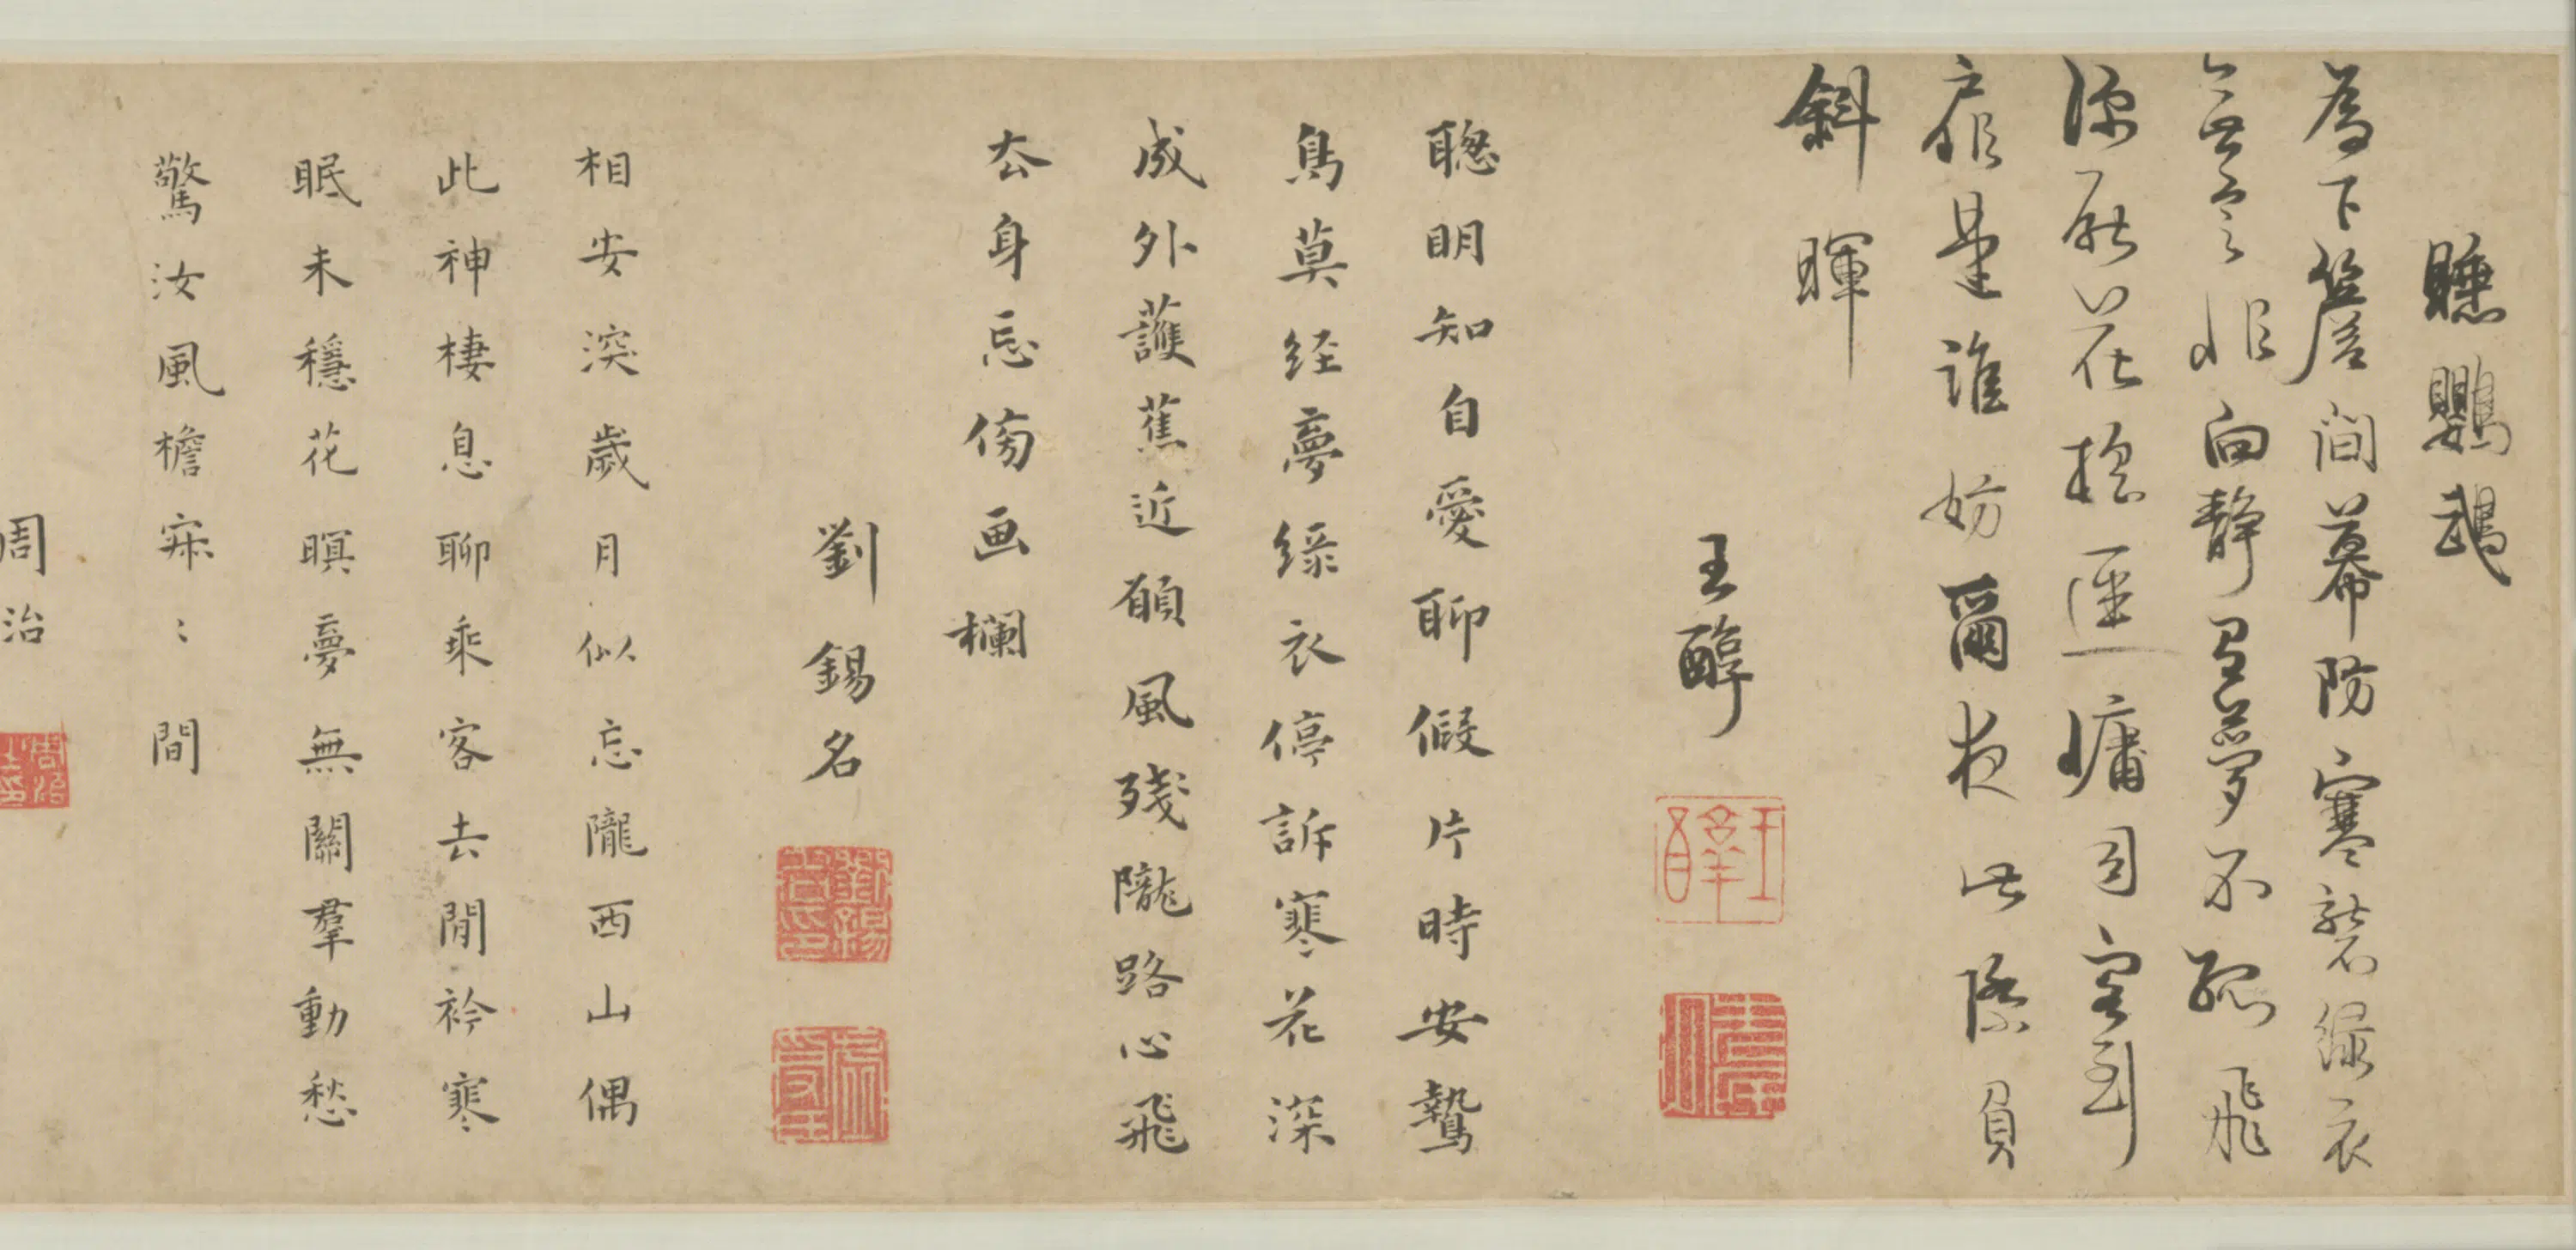 聽鸚鵡
為下簷間幕防寒襲綠衣
無言非向靜有夢不孤飛
深處花投逕慵司客到
扉是誰妨爾夜此際負
斜暉
王醇
聰明知自愛聊假片時安鷙
鳥莫經夢綠衣停訴寒花深
成外護蕉近願風殘隴路心飛
去身忘傍画欄
劉錫名
相安深歲月似忘隴西山偶
此神棲息聊乘客去閒衿寒
眠未穩花瞑夢無關羣動愁
驚汝風檐寂〻間
周治